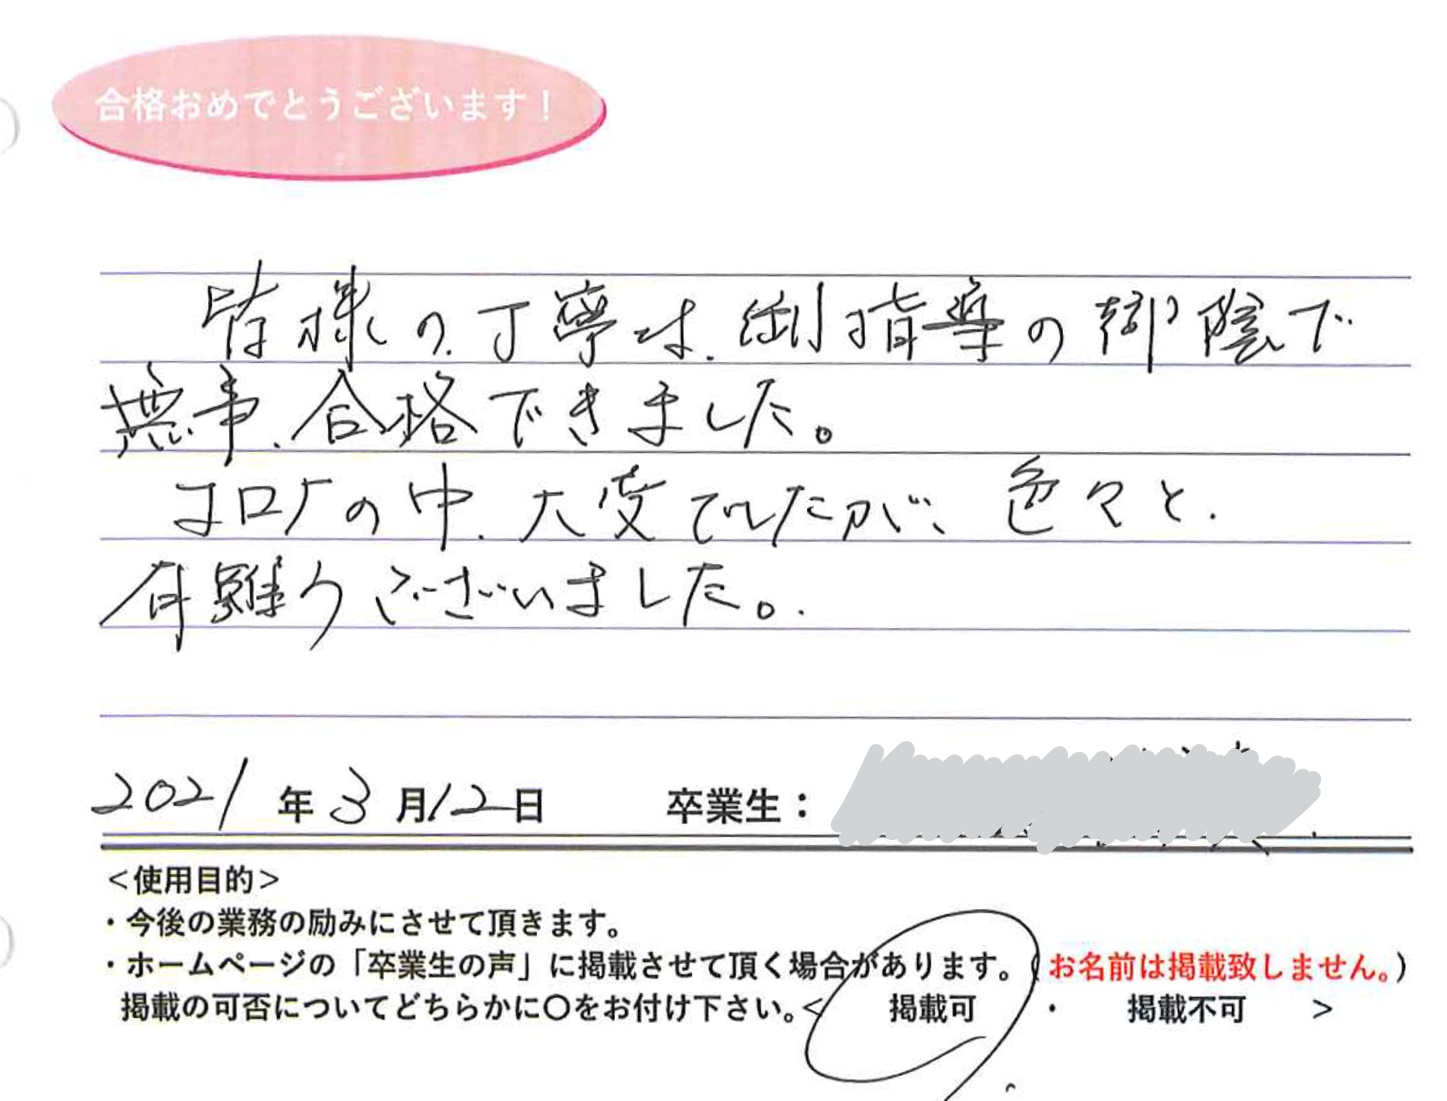 合格おめでとうございます！
皆様の丁寧な御指導の御陰で
無事、合格できました。
コロナの中、大変でしたが、色々と
有難うございました。
2021年3月12日 卒業生：
＜使用目的＞
・今後の業務の励みにさせて頂きます。
・ホームページの「卒業生の声」に掲載させて頂く場合があります。(お名前は掲載致しません。)
掲載の可否についてどちらかに〇をお付け下さい。＜ 掲載可 ・ 掲載不可 ＞